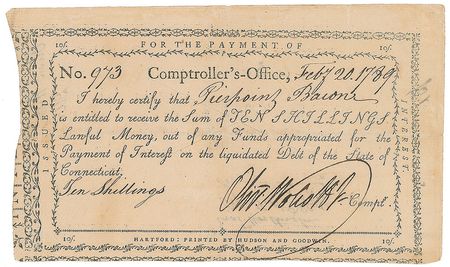 10/. FOR THE PAYMENT OF 10/.
No. 973 Comptroller's-Office, Feby 20. 1789
I hereby certify that Pierpoint Bacon
is entitled to receive the Sum of TEN SHILLINGS
Lawful Money, out of any Funds appropriated for the
Payment of Interest on the liquidated Debt of the State of
Connecticut,
Ten Shillings
Olivr. Wolcott Jr. Compt.
ISSUED
INTEREST.
10/. 10/.
HARTFORD: PRINTED BY HUDSON AND GOODWIN.